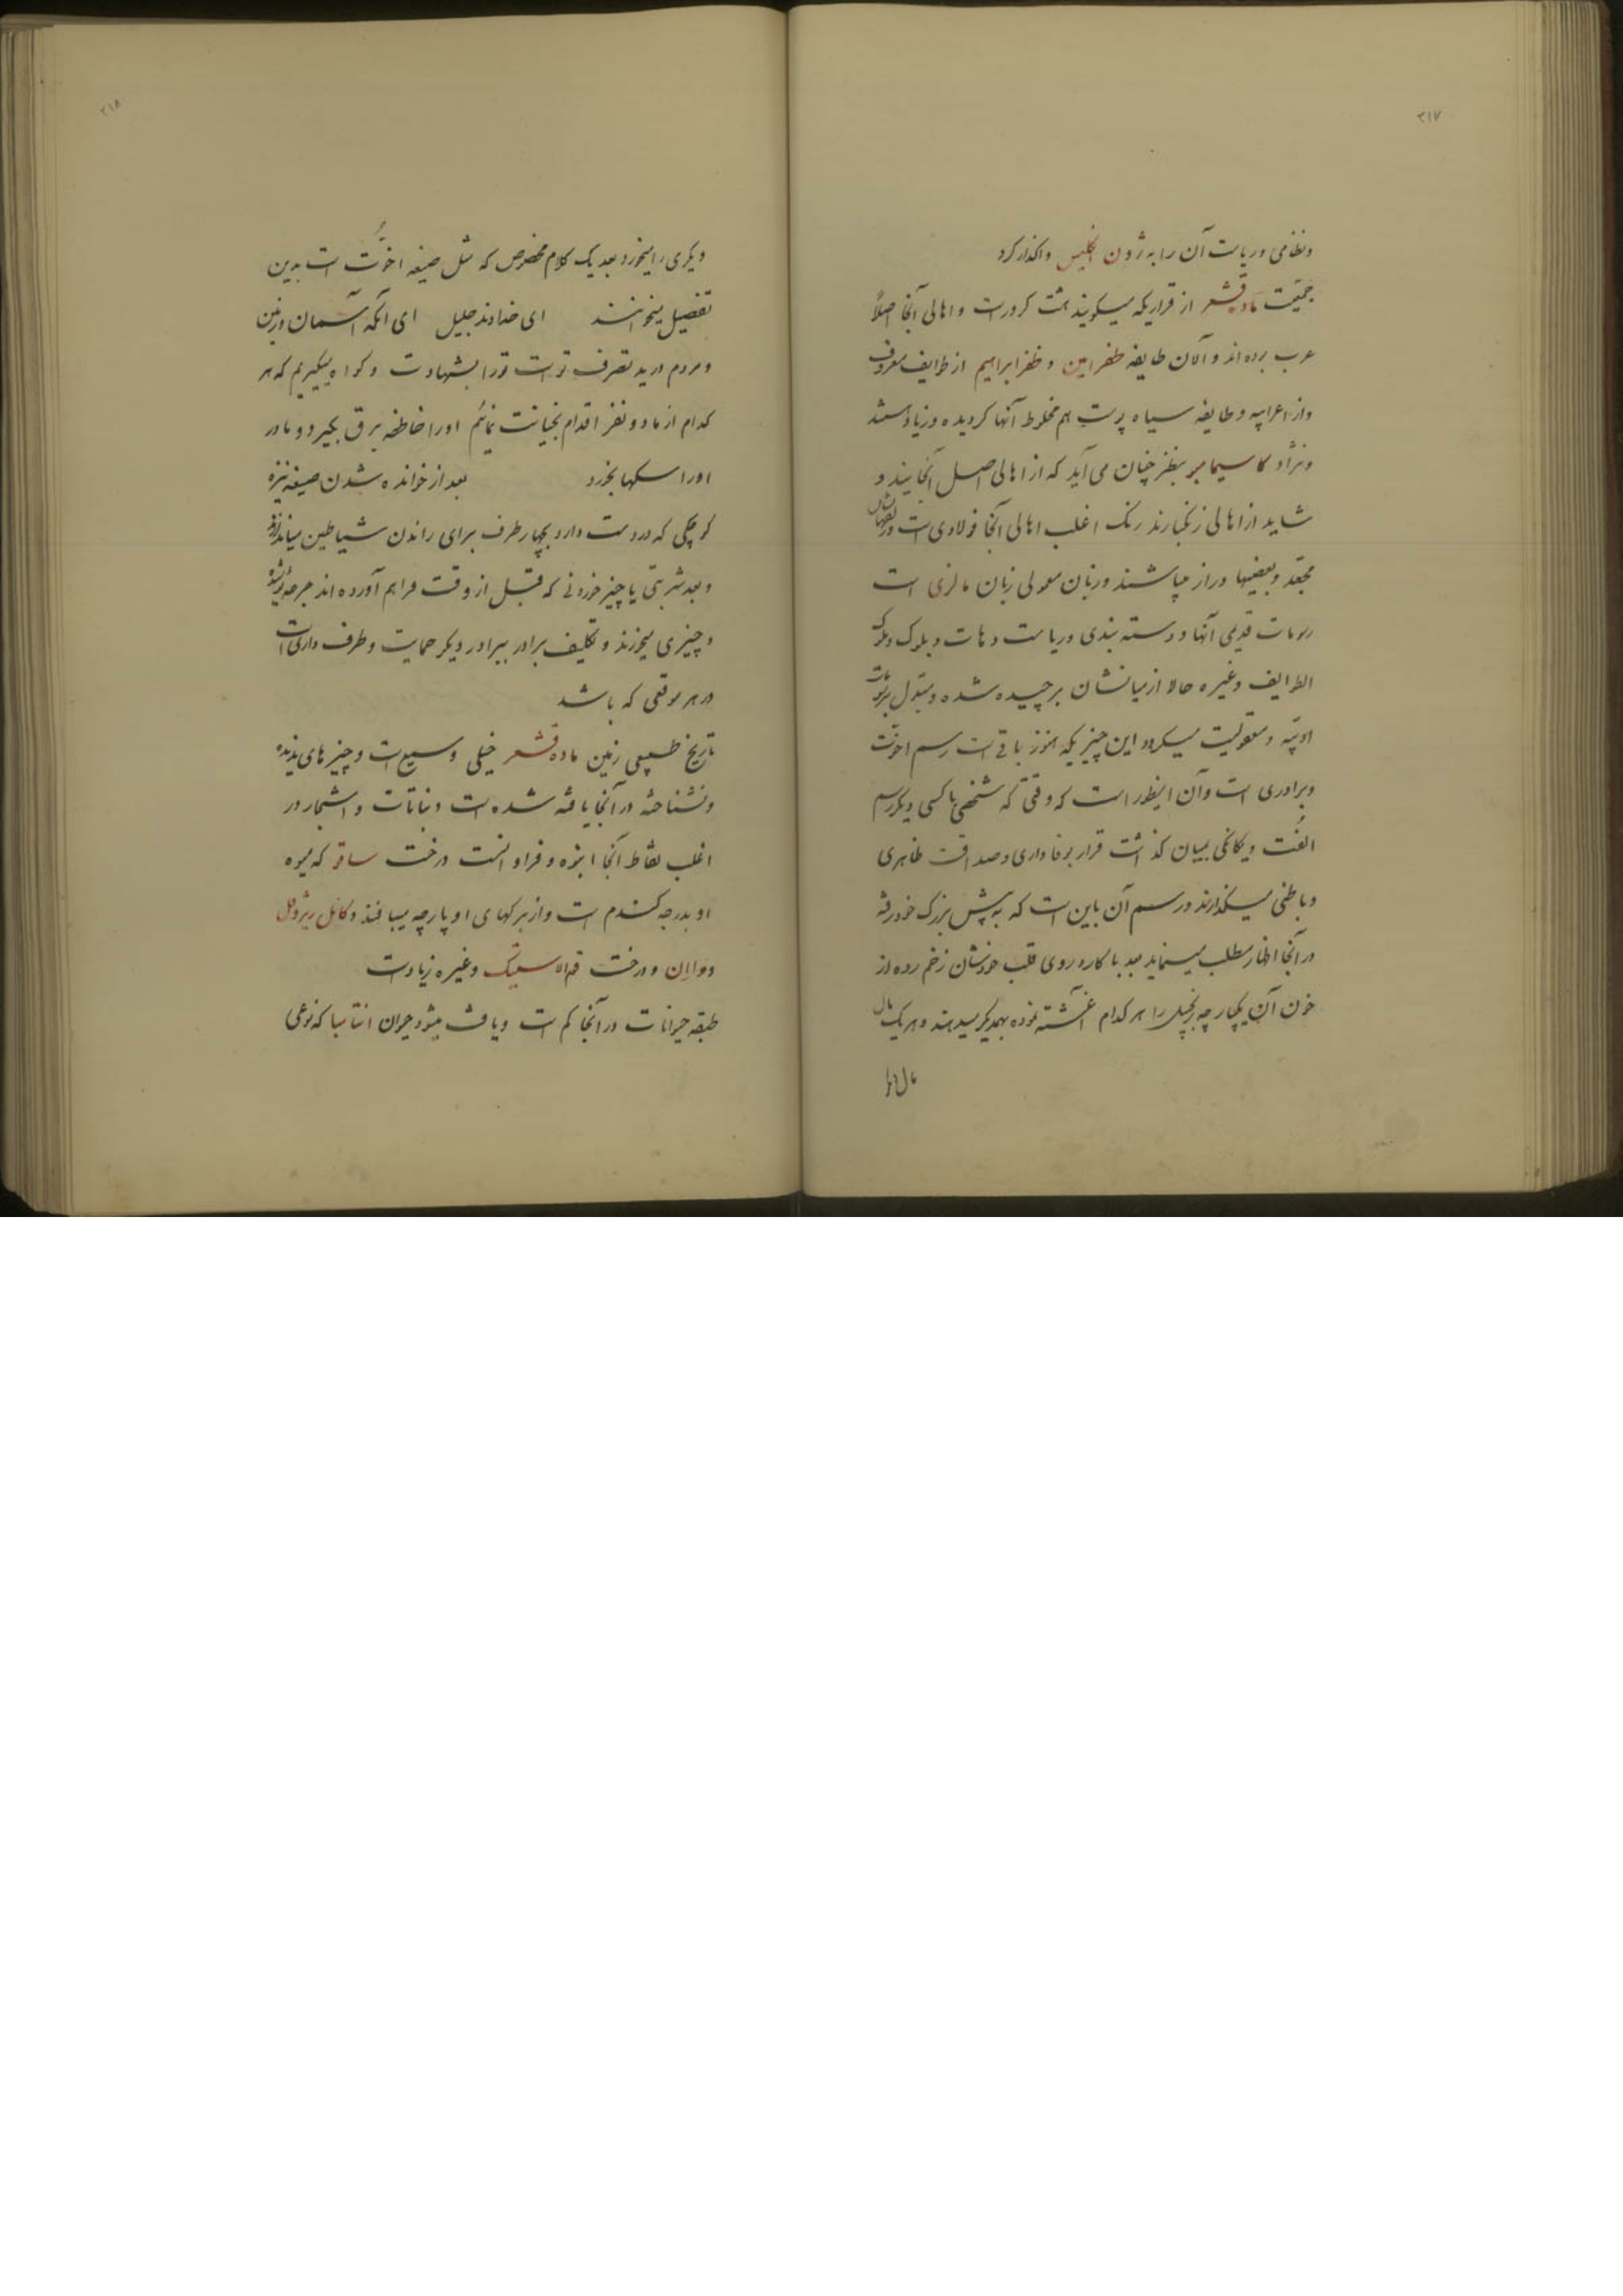 ۲۱۷
ونظامی وریاست آن را به ژون انگلیس واگذار کرد
جمعیّت ماده قشعر از قراریکه میگویند هشت کرورست و اهالی آنجا اصلاً
عرب بوده اند و الان طایفه ظفرامین و ظفرابراهیم از طوایف معروف
واز اعرابیه و طایفه سیاه پوست هم مخلوط آنها گردیده وزیاد هستند
ونژاد کاسیمامبو بنظر چنان می آید که از اهالی اصل آنجا بیند و
شاید از اهالی زنگبارند رنگ اغلب اهالی آنجا فولادی است و زلفهاشان
مجعّد وبعضیها دراز میباشند وزبان معمولی زبان مالزی است
رسومات قدیمی آنها و دسته بندی وریاست دهات و بلوک و ملوک
الطوایف وغیره حالا از میانشان برچیده شده ومبدّل برسومات
ادبیّه و معقولیت میگردد این چیزیکه هنوز باقی است رسم اخوّت
وبرادری است وآن اینطور است که وقتی که شخصی با کسی دیگر رسم
الفُت ویگانگی بمیان گذاشت قرار بوفاداری وصداقت ظاهری
وباطنی میگذارند ورسم آن باین است که به پیش بزرگ خود رفته
در آنجا اظهار مطلب مینماید بعد با کارد روی قلب خودشان زخم زده از
خون آن یکپارچه زنجبیل را هر کدام آغشته نموده بهمدیگر میدهند و هریک مال
مال
۲۱۸
دیگری را میخورد بعد یک کلام مخصوص که مثل صیغه اخوّت است بدین
تفصیل میخوانند ای خداوند جلیل ای آنکه آسمان وزمین
ومردم در ید تصرف تو است تورا بشهادت و گواه میگیریم که هر
کدام از ما دو نفر اقدام بخیانت نمائیم اورا خاطفه برق بگیرد و مادر
اورا سگها بخورد بعد از خوانده شدن صیغه نیزه
کوچکی که در دست دارد بچهار طرف برای راندن شیاطین میاندازد
وبعد شربتی یا چیز خوردنی که قبل از وقت فراهم آورده اند جرعه نوشیده
وچیزی میخورند و تکلیف برادر ببرادر دیگر حمایت وطرف داری است
در هر موقعی که باشد
تاریخ طبیعی زمین ماده قشعر خیلی وسیع است وچیزهای ندیده
ونشناخته در آنجا یافته شده است ونباتات واشجار در
اغلب نقاط آنجا انبوه و فراوانست درخت ساقو که میوه
او بدرجه گندم است واز برگهای او پارچه میبافند و
ودرخت وغیره زیادست
طبقه حیوانات در آنجا کم است ویافت میشود حیوان انتامبا که نوعی